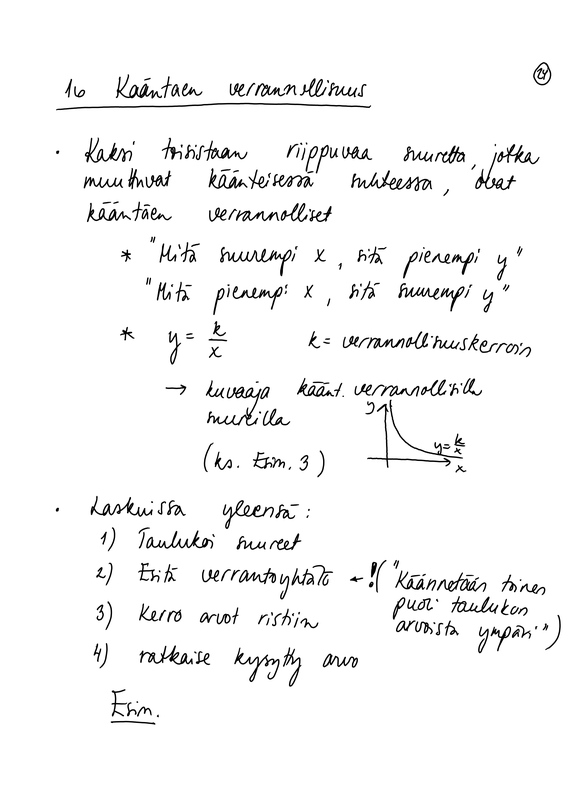 24
16 Kääntäen verrannollisuus
• Kaksi toisistaan riippuvaa suuretta, jotka
muuttuvat käänteisessä suhteessa, ovat
kääntäen verrannolliset
* "Mitä suurempi x, sitä pienempi y"
"Mitä pienempi x, sitä suurempi y"
* y = k/x k = verrannollisuuskerroin
→ kuvaaja käänt. verrannollisilla
suureilla
y
y = k/x
x
(ks. Esim. 3)
• Laskuissa yleensä:
1) Taulukoi suureet
2) Esitä verrantoyhtälö ← !("Käännetään toinen
puoli taulukon
arvoista ympäri")
3) Kerro arvot ristiin
4) ratkaise kysytty arvo
Esim.